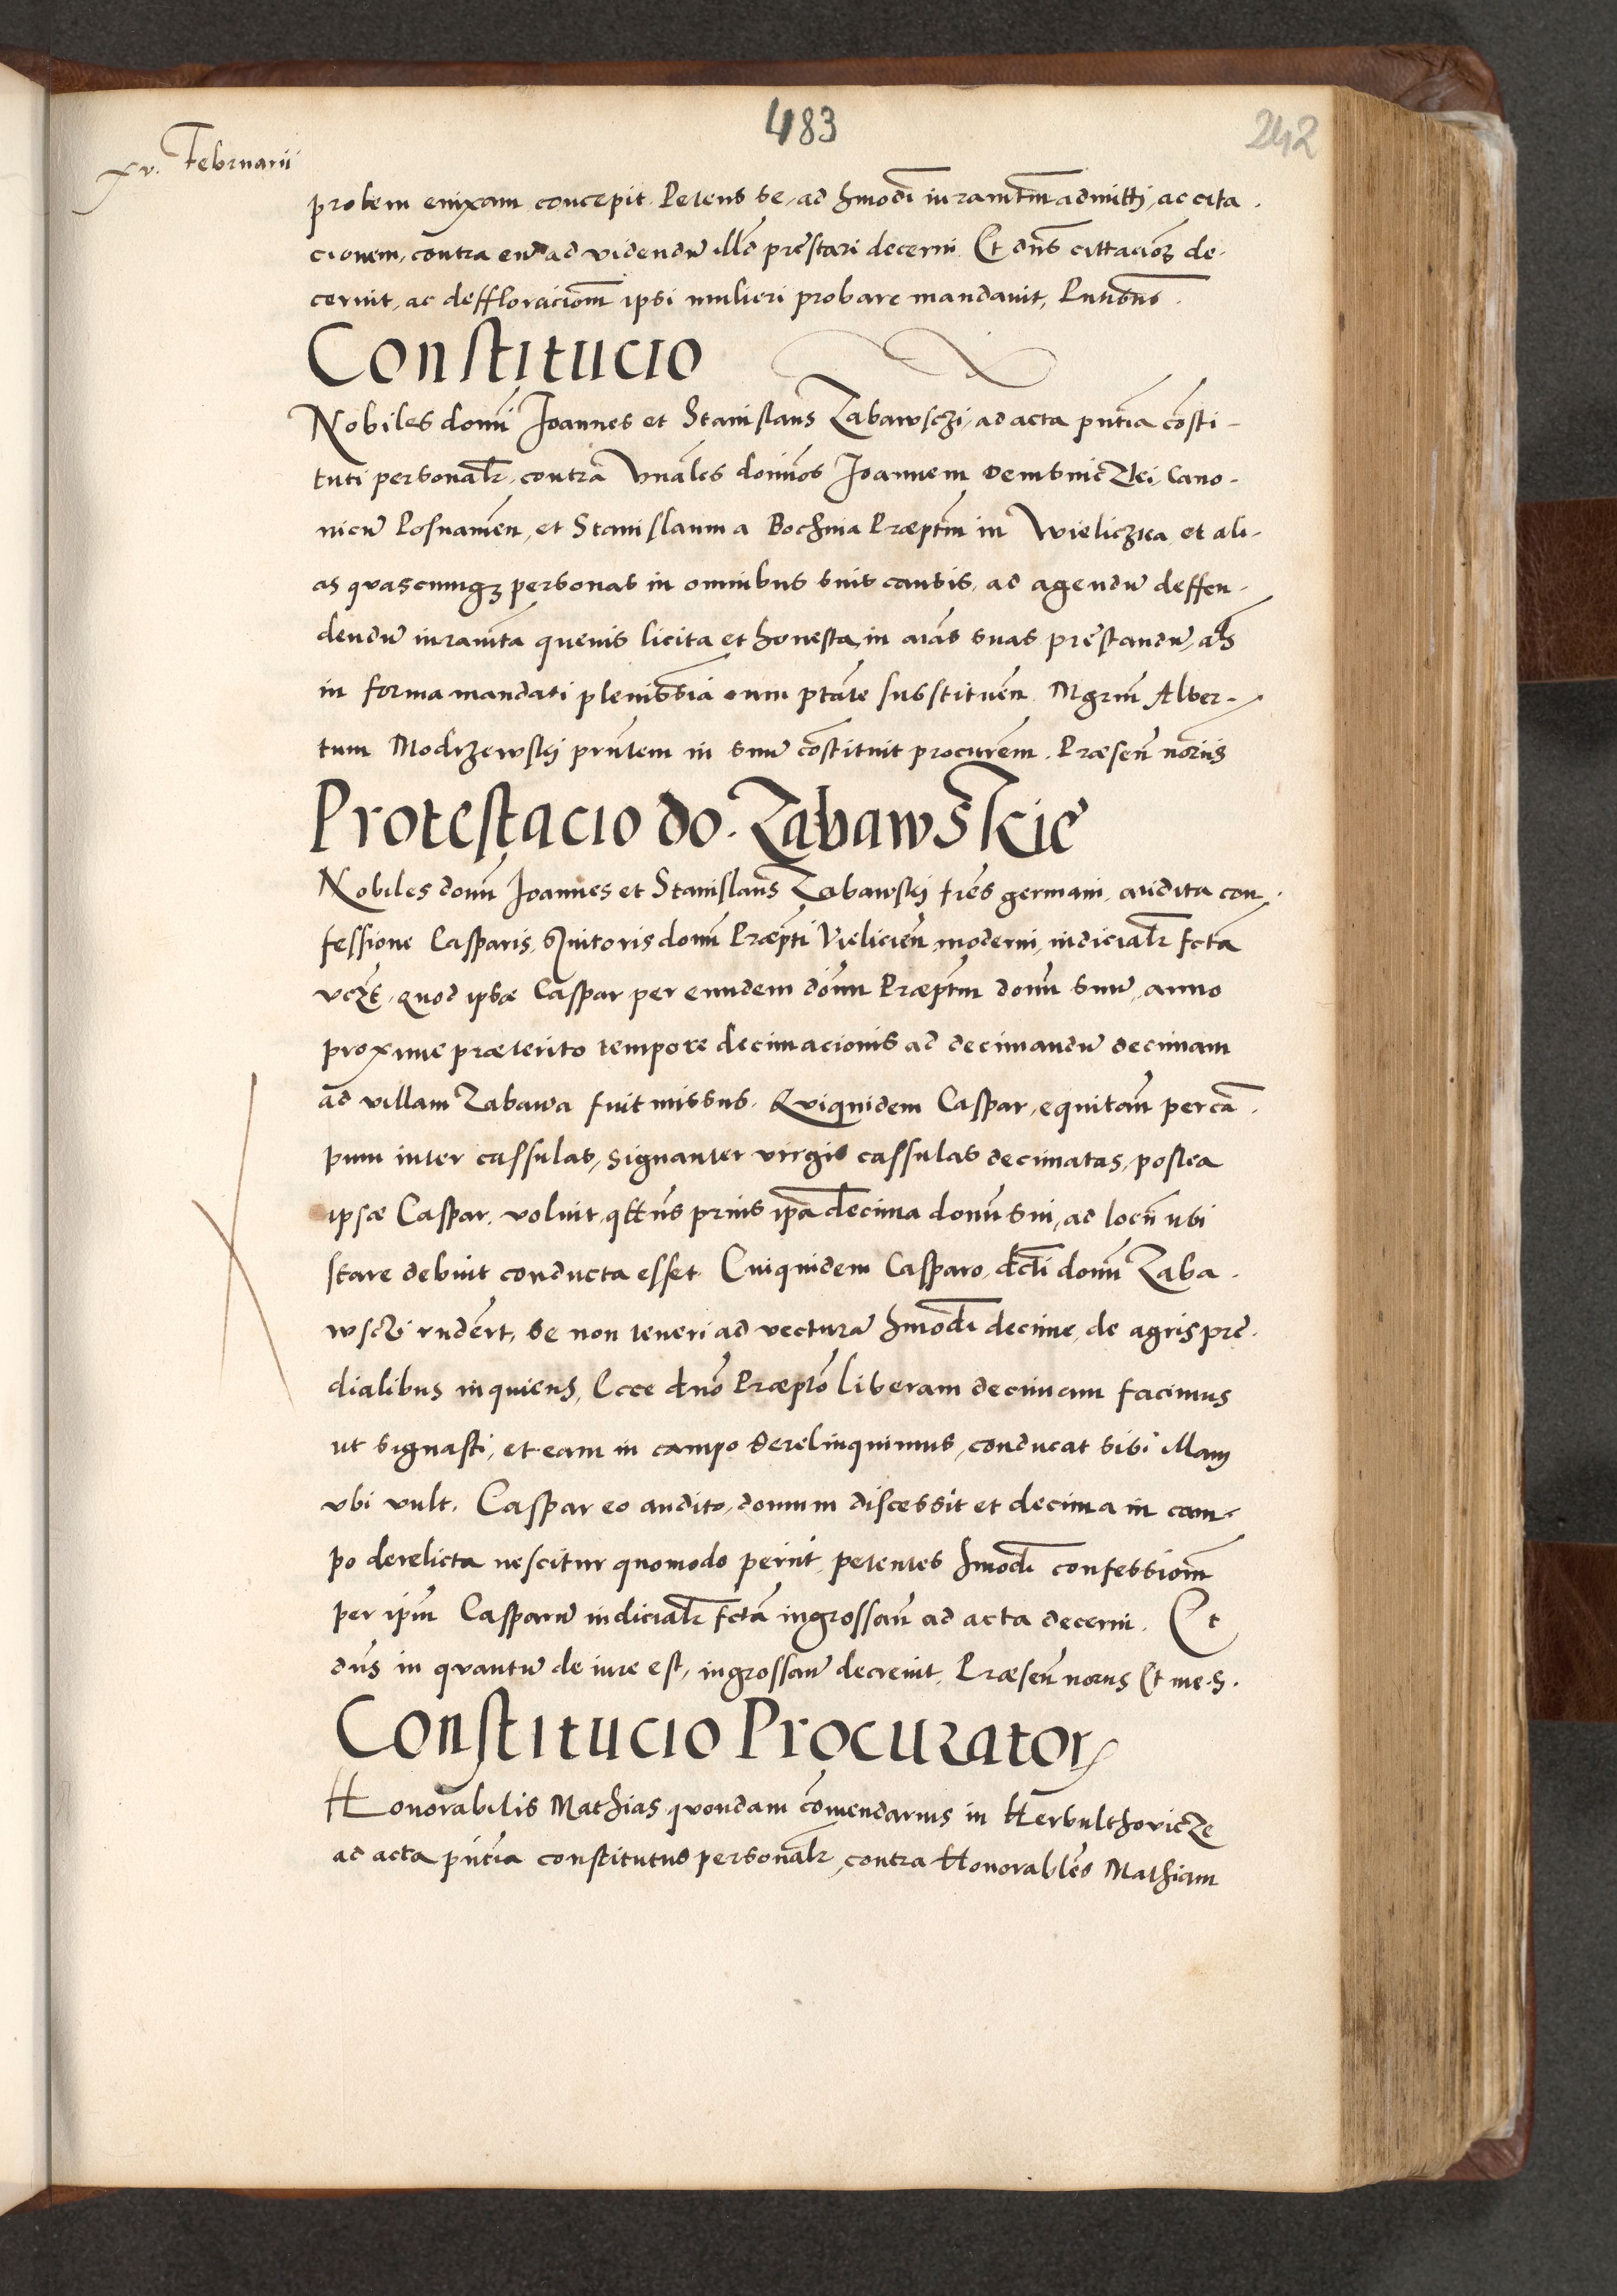 483
242
xv. Februarii
prolem enixam concepit. Petens se, ad hmodi iuramtm admitti, ac cita
cionem, contra eum ad videndu illd prestari decerni. Et dns cittacioz de
cernit, ac deffloraciom ipsi mulieri probare mandavit, Pntibus.
Constitucio
Nobiles domi Joannes et Stanislaus Zabawsczi, ad acta pntia costi-
tuti personalr, contra Vnales domos Joannem Cano-
nicu Posnamen, et Stanislaum a Bochnia Præptm in Wieliczka, et ali-
as quascumqz personas in omnibus suis causis, ad agendu deffen-
dendu iuramta quevis licita et honesta, in aias suas prestandu, als
in forma mandati plenissia cum ptate substituen. Mgrm Alber-
tum Modrzewski prntem in suu costituit procurem. Præsen noriis
Protestacio do. Zabawskie
Nobiles domi Joannes et Stanislaus Zabawskj fres germani, audita con-
fessione Casparis, Svitoris domi Præpti Vielicien moderni, iudicialr fcta
vczt, quod ipsæ Caspar per eundem dom Præptm domu suu, anno
proxime præterito tempore decimacionis ad decimandu decimam
ad villam Zabawa fuit missus. Quiquidem Caspar, equitan per ca-
pum inter cassulas, signanter virgis cassulas decimatas, postea
ipsæ Caspar, voluit, qttns prius ipa decima domi sui, ad locu ubi
stare debuit conducta esset. Cuiquidem Casparo, dcti domi Zaba-
wsczi rnderut, se non teneri ad vectura hmodi decime, de agris pre-
dialibus inquiens, Ecce dno Præpto liberam decimam facimus
ut signasti, et eam in campo derelinquimus, conducat sibi illam
vbi vult. Caspar eo audito, domum discessit et decima in cam-
po derelicta nescitur quomodo periit, petentes hmodi confessiom
per ipm Casparu iudicialr fcta ingrossan ad acta decerni. Et
dns in quantu de iure est, ingrossan decrevit. Præsen noriis Et me. S.
Constitucio Procurator
Honorabilis Mathias quondam comendarius in Herbulthovicze
ad acta pntia constitutus personalr, contra Honorables Mathiam